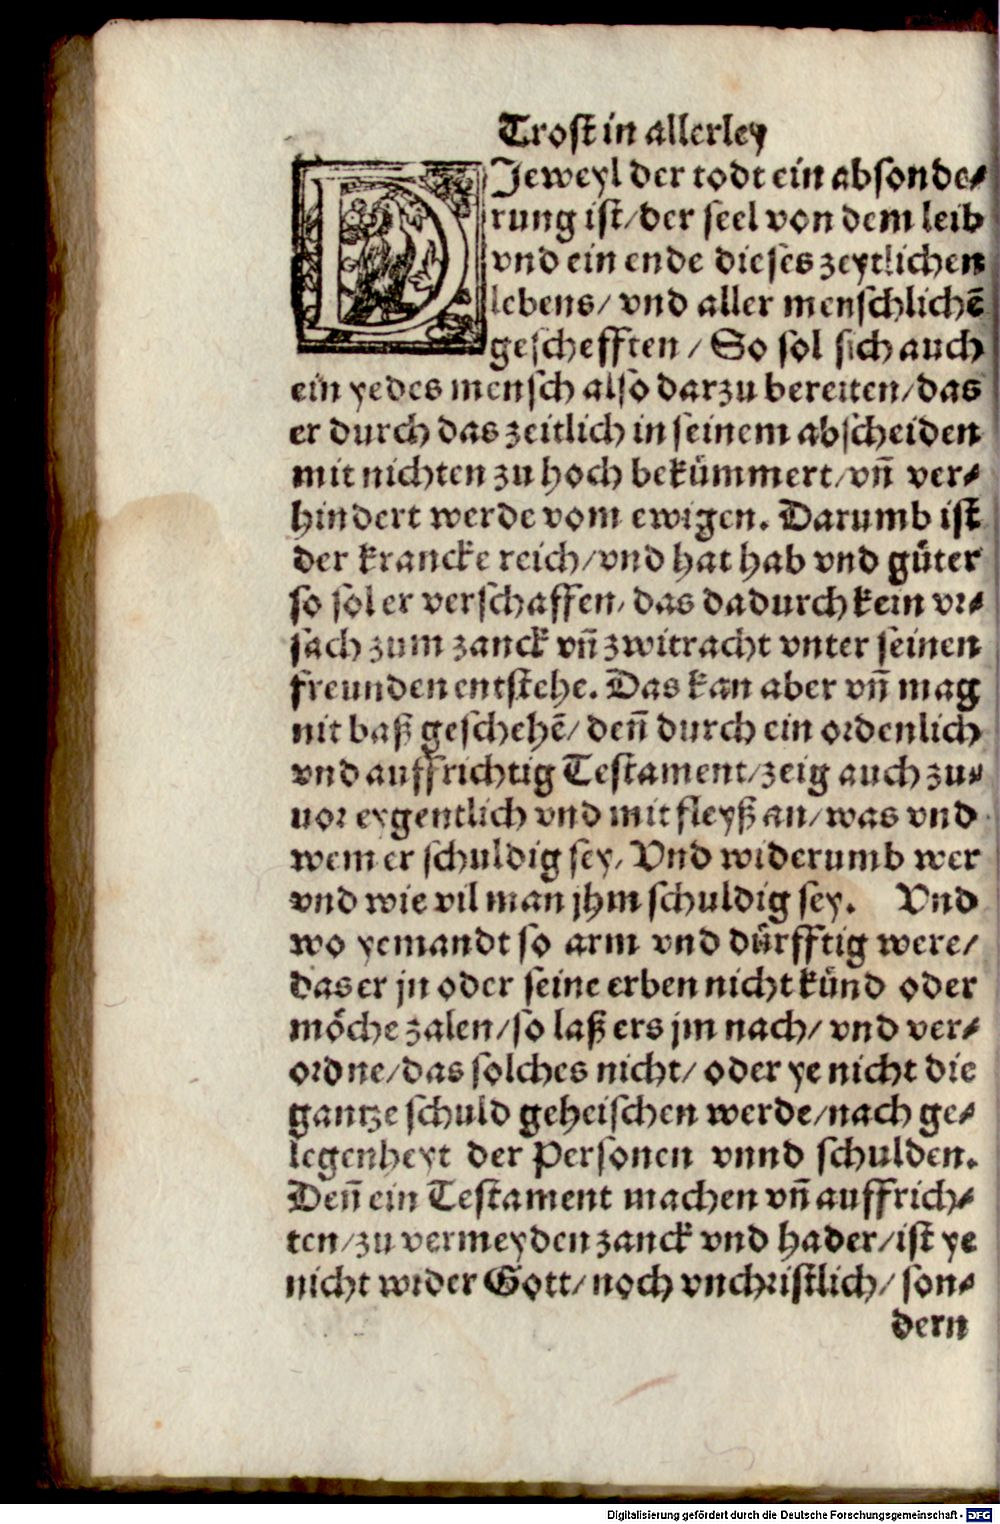 Trost in allerley
DJeweyl der todt ein absonde⸗
rung ist/der seel von dem leib
vnd ein ende dieses zeytlichen
lebens/ vnd aller menschlichē
geschefften / So sol sich auch
ein yedes mensch also darzu bereiten/das
er durch das zeitlich in seinem abscheiden
mit nichten zu hoch bekümmert/vn̄ ver⸗
hindert werde vom ewigen. Darumb ist
der krancke reich/vnd hat hab vnd güter
so sol er verschaffen/ das dadurch kein vr⸗
sach zum zanck vn̄ zwitracht vnter seinen
freunden entstehe. Das kan aber vn̄ mag
nit baß geschehē/ den̄ durch ein ordenlich
vnd auffrichtig Testament/zeig auch zu⸗
uor eygentlich vnd mit fleyß an/was vnd
wem er schuldig sey/ Vnd widerumb wer
vnd wie vil man jhm schuldig sey. Vnd
wo yemandt so arm vnd dürfftig were/
das er jn oder seine erben nicht künd oder
möche zalen/so laß ers jm nach/ vnd ver⸗
ordne/das solches nicht/ oder ye nicht die
gantze schuld geheischen werde/nach ge⸗
legenheyt der Personen vnnd schulden.
Den̄ ein Testament machen vn̄ auffrich⸗
ten/zu vermeyden zanck vnd hader/ist ye
nicht wider Gott/noch vnchristlich/ son⸗
dern
Digitalisierung gefördert durch die Deutsche Forschungsgemeinschaft - DFG